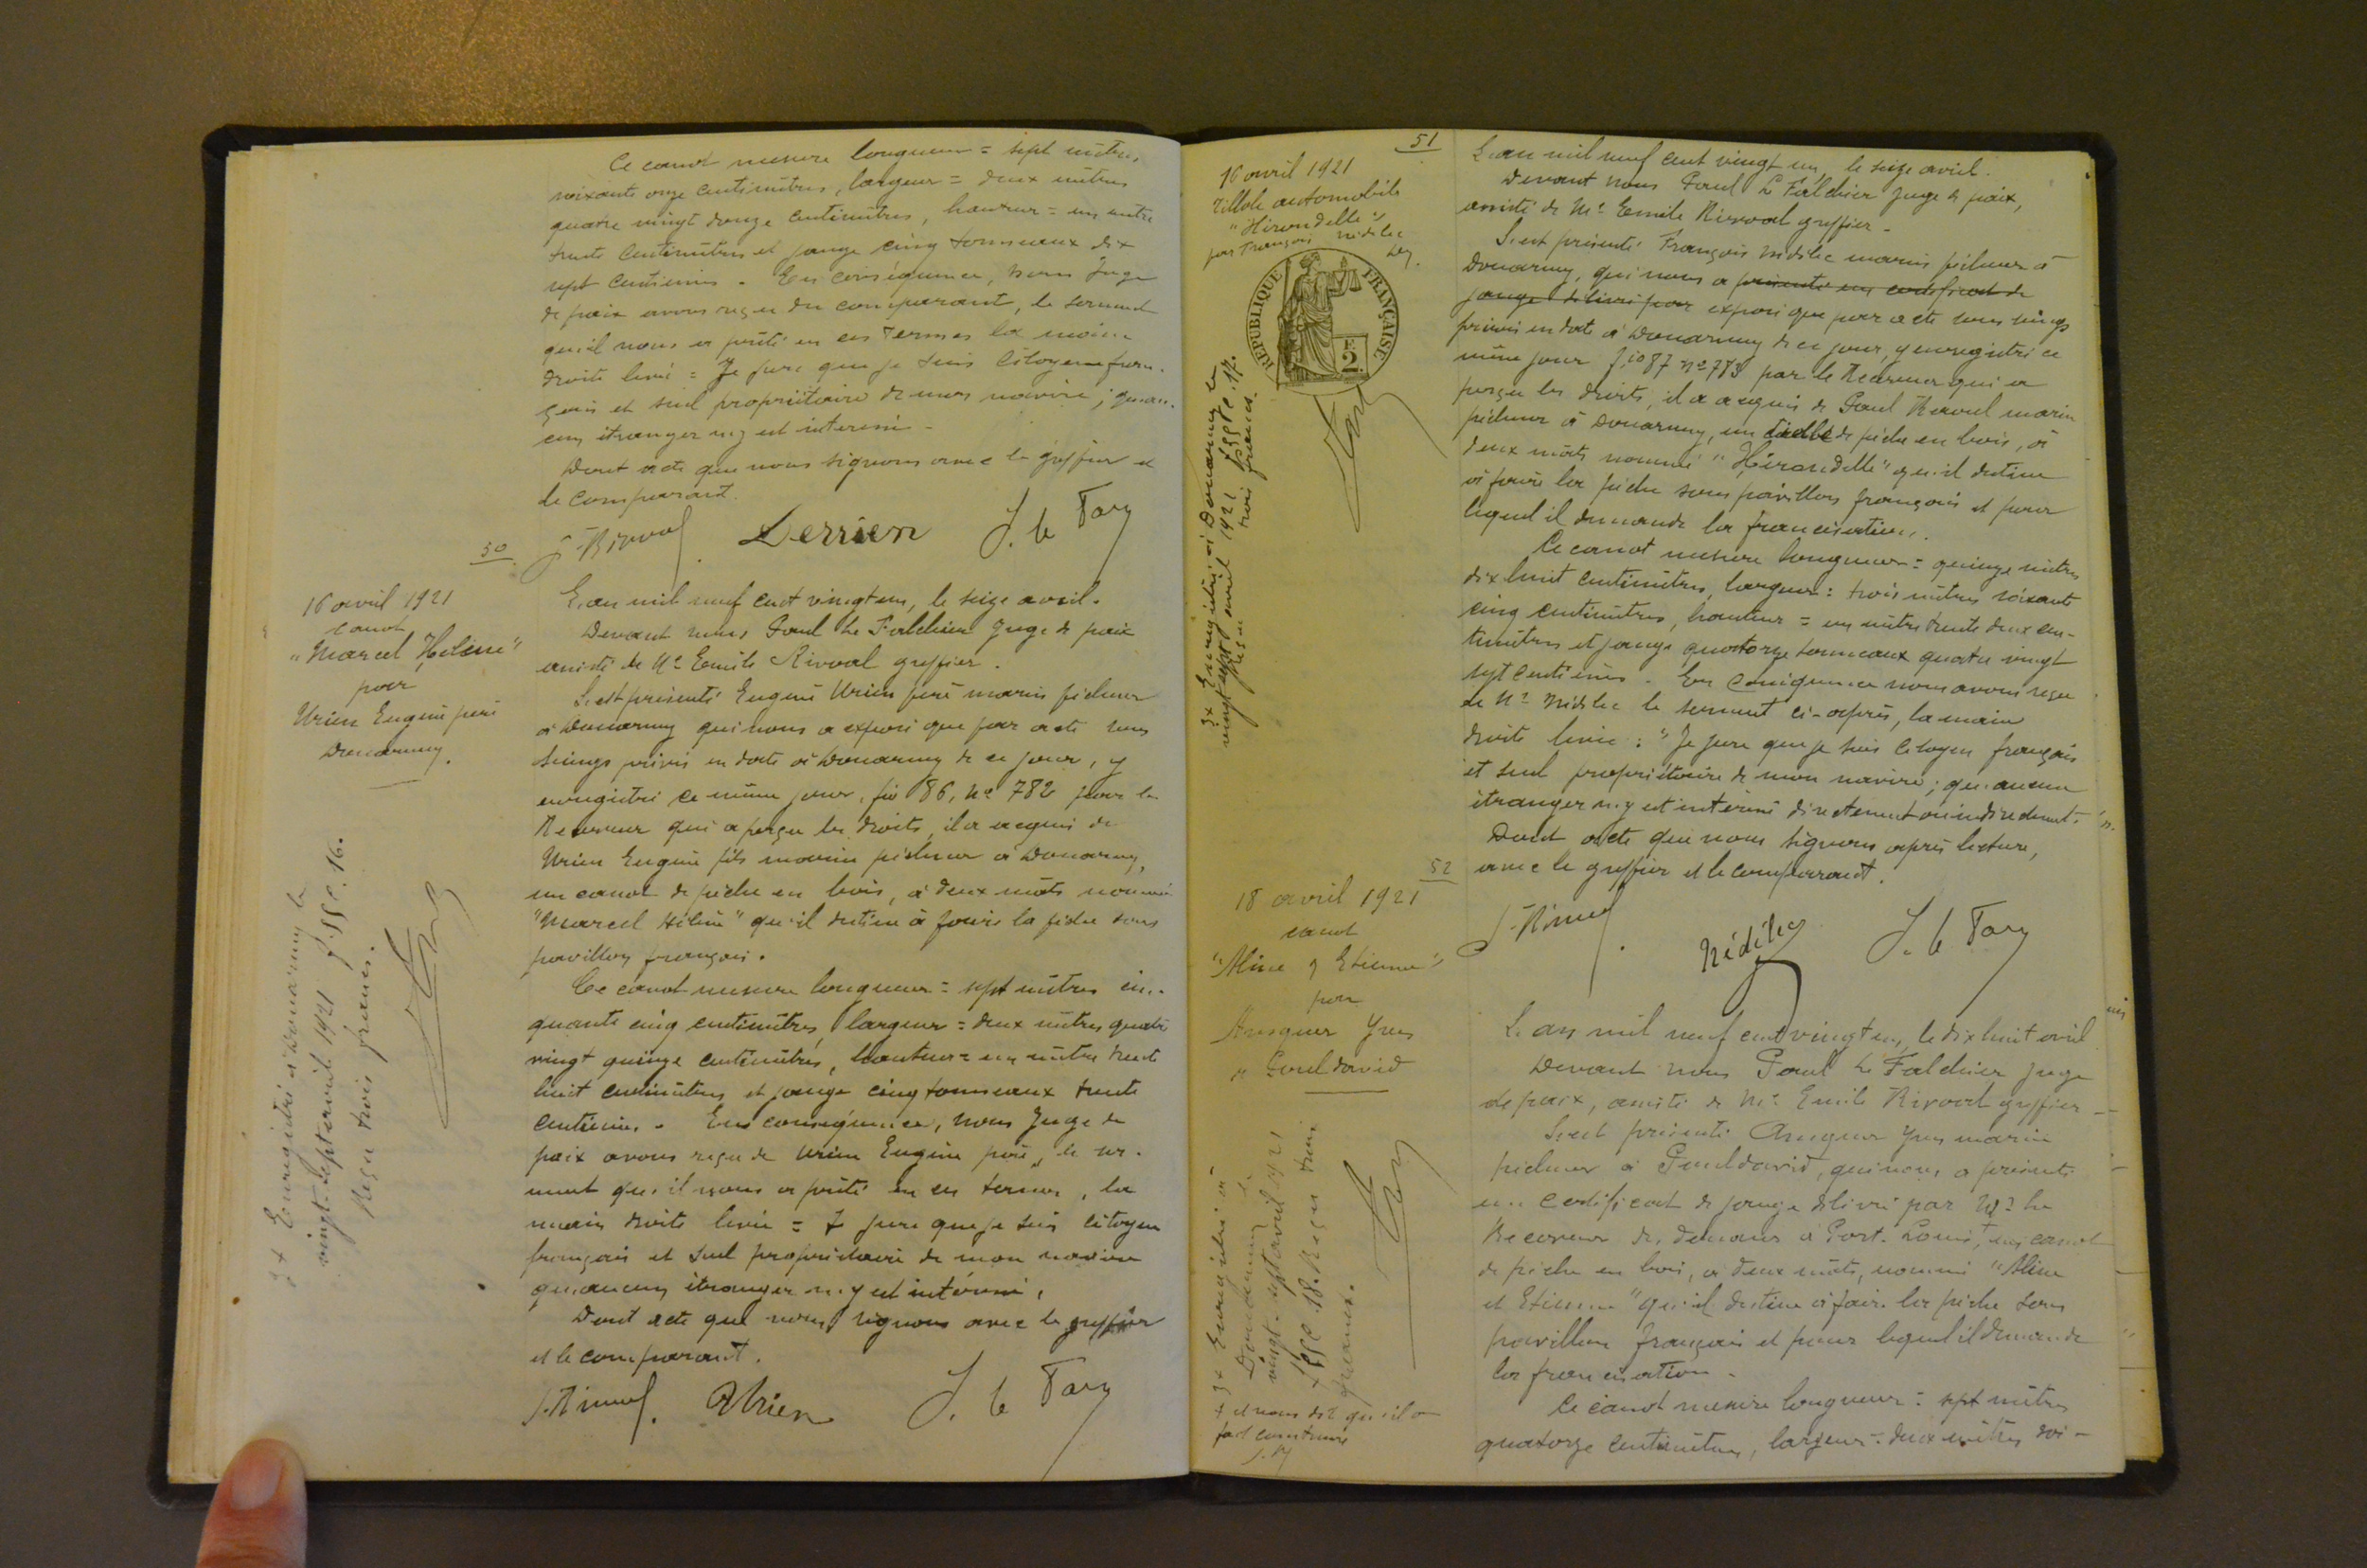 Ce canot mesure longueur = sept mètres
soixante onze centimètres, largeur = deux mètres
quatre vingt douze centimètres, hauteur = un mètre
trente centimètres et jauge cinq tonneaux dix
sept centièmes. En conséquence, nous Juge
de paix avons reçu du comparant, le serment
qu'il nous a prêté en ces termes la main
droite levée = Je jure que je suis citoyen fran-
çais et seul propriétaire de mon navire ; qu'au-
cun étranger n'y est intéressé.
Dont acte que nous signons avec le greffier et
le comparant.
E. Rivoal Derrien
50
16 avril 1921
canot
"Marcel Hélène"
pour
Urien Eugène père
Douarnenez.
L'an mil neuf cent vingt un, le seize avril.
Devant nous Paul Le Falchier Juge de paix
assisté de Me Emile Rivoal greffier.
S'est présenté Eugène Urien père marin pêcheur
à Douarnenez qui nous a exposé que par acte sous
seings privés en date à Douarnenez de ce jour, y
enregistré ce même jour, fio 86, no 782 par le
Receveur qui a perçu les droits, il a acquis de
Urien Eugène fils marin pêcheur à Douarnenez,
un canot de pêche en bois, à deux mâts nommé
"Marcel Hélène" qu'il destine à faire la pêche sous
pavillon français.
Ce canot mesure longueur = sept mètres cin-
quante cinq centimètres, largeur = deux mètres quatre
vingt quinze centimètres, hauteur = un mètre trente
huit centimètres et jauge cinq tonneaux trente
centièmes. En conséquence, nous Juge de
paix avons reçu de Urien Eugène père, le ser-
ment qu'il nous a prêté en ces termes, la
main droite levée = Je jure que je suis citoyen
français et seul propriétaire de mon navire
qu'aucun étranger n'y est intéressé.
Dont acte que nous signons avec le greffier
et le comparant.
E. Rivoal. Urien
Enregistré à Douarnenez le
vingt-sept avril 1921 fo 55 c. 16.
Reçu trois francs.
51
16 avril 1921
Tillole automobile
"Hirondelle"
par François Nédélec
Dez.
REPUBLIQUE FRANÇAISE
2 F
Enregistré à Douarnenez le
vingt sept avril 1921 fo 55 c. 17.
Reçu trois francs.
L'an mil neuf cent vingt un, le seize avril.
Devant nous Paul Le Falchier Juge de paix,
assisté de Me Emile Rivoal greffier.
S'est présenté François Nédélec marin pêcheur à
Douarnenez, qui nous a présenté un certificat de
jauge délivré par exposé que par acte sous seings
privés en date à Douarnenez de ce jour, y enregistré ce
même jour fio 87 no 783 par le Receveur qui a
perçu les droits, il a acquis de Paul marin
pêcheur à Douarnenez, un de pêche en bois, à
deux mâts nommé "Hirondelle" qu'il destine
à faire la pêche sous pavillon français et pour
lequel il demande la francisation.
Ce canot mesure longueur = quinze mètres
dix huit centimètres, largeur = trois mètres soixante
cinq centimètres, hauteur = un mètre trente deux cen-
timètres et jauge quatorze tonneaux quatre vingt
sept centièmes. En conséquence nous avons reçu
de Mr Nédélec le serment ci-après, la main
droite levée : "Je jure que je suis citoyen français
et seul propriétaire de mon navire ; qu'aucun
étranger n'y est intéressé directement ou indirectement."
Dont acte que nous signons après lecture,
avec le greffier et le comparant.
E. Rivoal. Nédélec
52
18 avril 1921
canot
"Aline et Etienne"
par
Ansquer Yves
de Pouldavid
Enregistré à
Douarnenez le
vingt-sept avril 1921
fo 55 c. 18. Reçu trois
francs.
+ et nous dit qu'il a
fait construire
L'an mil neuf cent vingt un, le dix huit avril
Devant nous Paul Le Falchier Juge
de paix, assisté de Me Emile Rivoal greffier
S'est présenté Ansquer Yves marin
pêcheur à Pouldavid, qui nous a présenté
un certificat de jauge délivré par Mr le
Receveur des Douanes à Port-Louis, + un canot
de pêche en bois, à deux mâts, nommé "Aline
et Etienne" qu'il destine à faire la pêche sous
pavillon français et pour lequel il demande
la francisation.
Ce canot mesure longueur = sept mètres
quatorze centimètres, largeur = deux mètres soi-